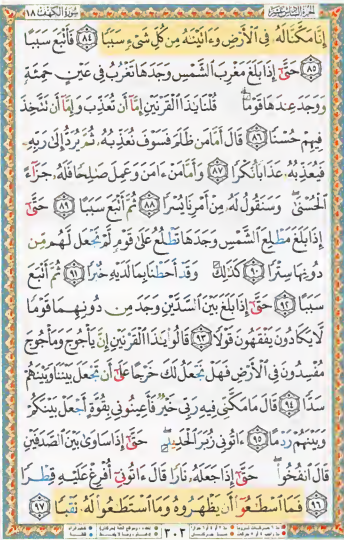 سورة الكهف ١٨
إِنَّا مَكَّنَّا لَهُۥ فِى ٱلْأَرْضِ وَءَاتَيْنَٰهُ مِن كُلِّ شَىْءٍ سَبَبًا ٨٤ فَأَتْبَعَ سَبَبًا
٨٥ حَتَّىٰٓ إِذَا بَلَغَ مَغْرِبَ ٱلشَّمْسِ وَجَدَهَا تَغْرُبُ فِى عَيْنٍ حَمِئَةٍ
وَوَجَدَ عِندَهَا قَوْمًا ۗ قُلْنَا يَٰذَا ٱلْقَرْنَيْنِ إِمَّآ أَن تُعَذِّبَ وَإِمَّآ أَن تَتَّخِذَ
فِيهِمْ حُسْنًا ٨٦ قَالَ أَمَّا مَن ظَلَمَ فَسَوْفَ نُعَذِّبُهُۥ ثُمَّ يُرَدُّ إِلَىٰ رَبِّهِۦ
فَيُعَذِّبُهُۥ عَذَابًا نُّكْرًا ٨٧ وَأَمَّا مَنْ ءَامَنَ وَعَمِلَ صَٰلِحًا فَلَهُۥ جَزَآءً
ٱلْحُسْنَىٰ ۖ وَسَنَقُولُ لَهُۥ مِنْ أَمْرِنَا يُسْرًا ٨٨ ثُمَّ أَتْبَعَ سَبَبًا ٨٩ حَتَّىٰٓ
إِذَا بَلَغَ مَطْلِعَ ٱلشَّمْسِ وَجَدَهَا تَطْلُعُ عَلَىٰ قَوْمٍ لَّمْ نَجْعَل لَّهُم مِّن
دُونِهَا سِتْرًا ٩٠ كَذَٰلِكَ وَقَدْ أَحَطْنَا بِمَا لَدَيْهِ خُبْرًا ٩١ ثُمَّ أَتْبَعَ
سَبَبًا ٩٢ حَتَّىٰٓ إِذَا بَلَغَ بَيْنَ ٱلسَّدَّيْنِ وَجَدَ مِن دُونِهِمَا قَوْمًا
لَّا يَكَادُونَ يَفْقَهُونَ قَوْلًا ٩٣ قَالُوا۟ يَٰذَا ٱلْقَرْنَيْنِ إِنَّ يَأْجُوجَ وَمَأْجُوجَ
مُفْسِدُونَ فِى ٱلْأَرْضِ فَهَلْ نَجْعَلُ لَكَ خَرْجًا عَلَىٰٓ أَن تَجْعَلَ بَيْنَنَا وَبَيْنَهُمْ
سَدًّا ٩٤ قَالَ مَا مَكَّنِّى فِيهِ رَبِّى خَيْرٌ فَأَعِينُونِى بِقُوَّةٍ أَجْعَلْ بَيْنَكُمْ
وَبَيْنَهُمْ رَدْمًا ٩٥ ءَاتُونِى زُبَرَ ٱلْحَدِيدِ ۖ حَتَّىٰٓ إِذَا سَاوَىٰ بَيْنَ ٱلصَّدَفَيْنِ
قَالَ ٱنفُخُوا۟ ۖ حَتَّىٰٓ إِذَا جَعَلَهُۥ نَارًا قَالَ ءَاتُونِىٓ أُفْرِغْ عَلَيْهِ قِطْرًا
٩٦ فَمَا ٱسْطَٰعُوٓا۟ أَن يَظْهَرُوهُ وَمَا ٱسْتَطَٰعُوا۟ لَهُۥ نَقْبًا ٩٧
٣٠٣